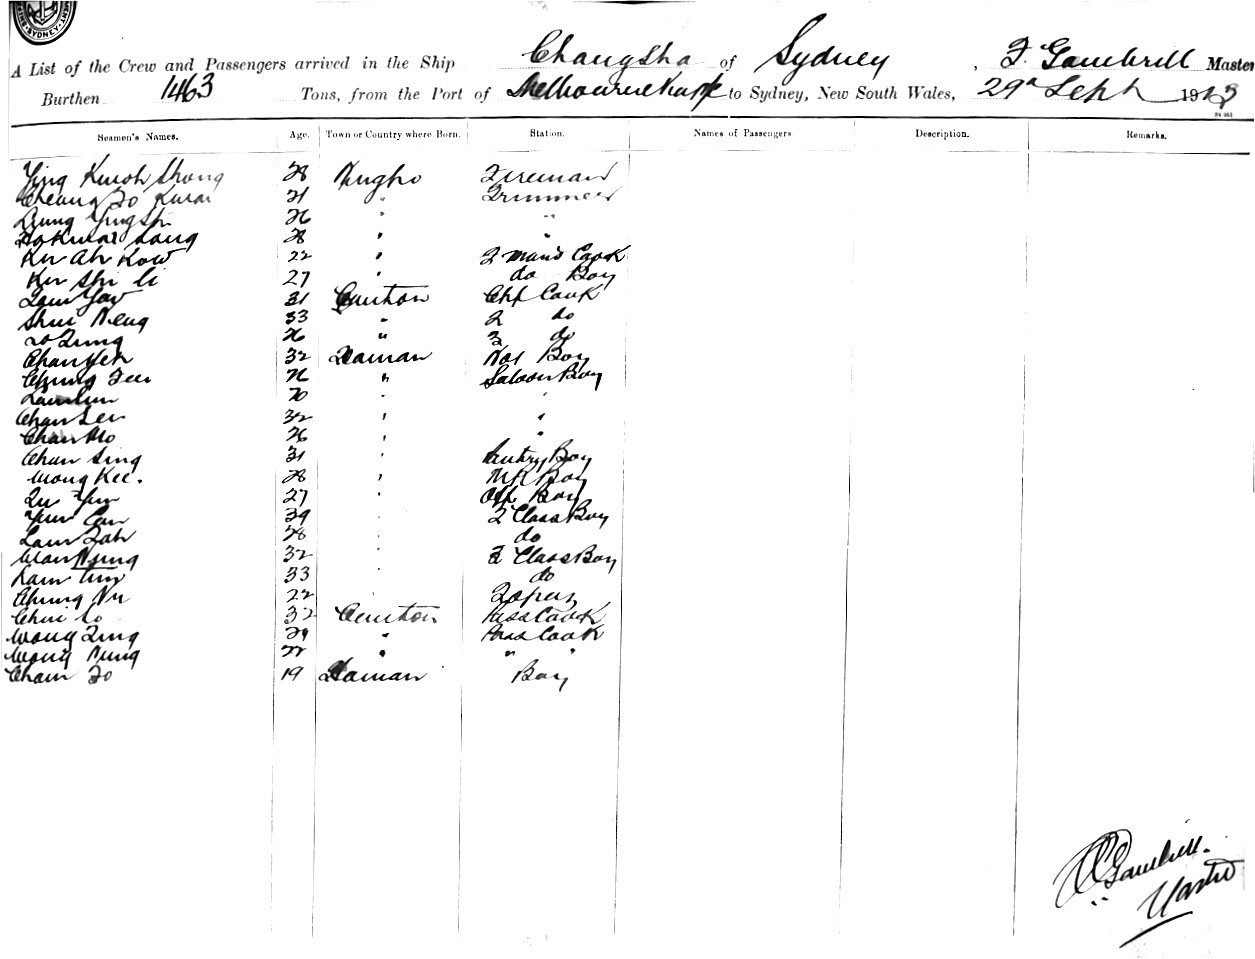 SYDNEY
A List of the Crew and Passengers arrived in the Ship Changsha of Sydney, F. Gambrill Master
Burthen 1463 Tons, from the Port of Melbourne to Sydney, New South Wales, 29th Sept 1913
Seamen's Names. Age. Town or Country where Born. Station. Names of Passengers. Description. Remarks.
Ying Kwoh Shong 28 Ningpo Fireman
Cheung Fo Kwai 21 " Trimmer
Leung Ying 26 " "
28 " "
Ku Ah Kow 22 " 2 Mans Cook
Ku Shi Li 27 " do Boy
Lam Yow 31 Canton Chf Cook
Shui Neng 33 " 2 do
Lo Lung 26 " 3 do
Chan Yeh 32 Hainan Nav Boy
Chung Fui 26 " Saloon Boy
Lam Lun 20 " "
Chan Sen 32 " "
Chan Mo 26 " "
Chan Sing 31 " Pantry Boy
Wong Kee. 28 " MR Boy
Lu Yun 27 " Off Boy
Yun Can 39 " 2 Class Boy
Lam Tah 28 " do
Wan Nung 32 " 2 Class Boy
Lam Tim 33 " do
Chung Nu 22 "
Chui Lo 32 Canton Pass Cook
Wong Ling 29 " Pass Cook
Wong Nung 22 " " "
Cham Fo 19 Hainan Boy
Gambrill.
Master